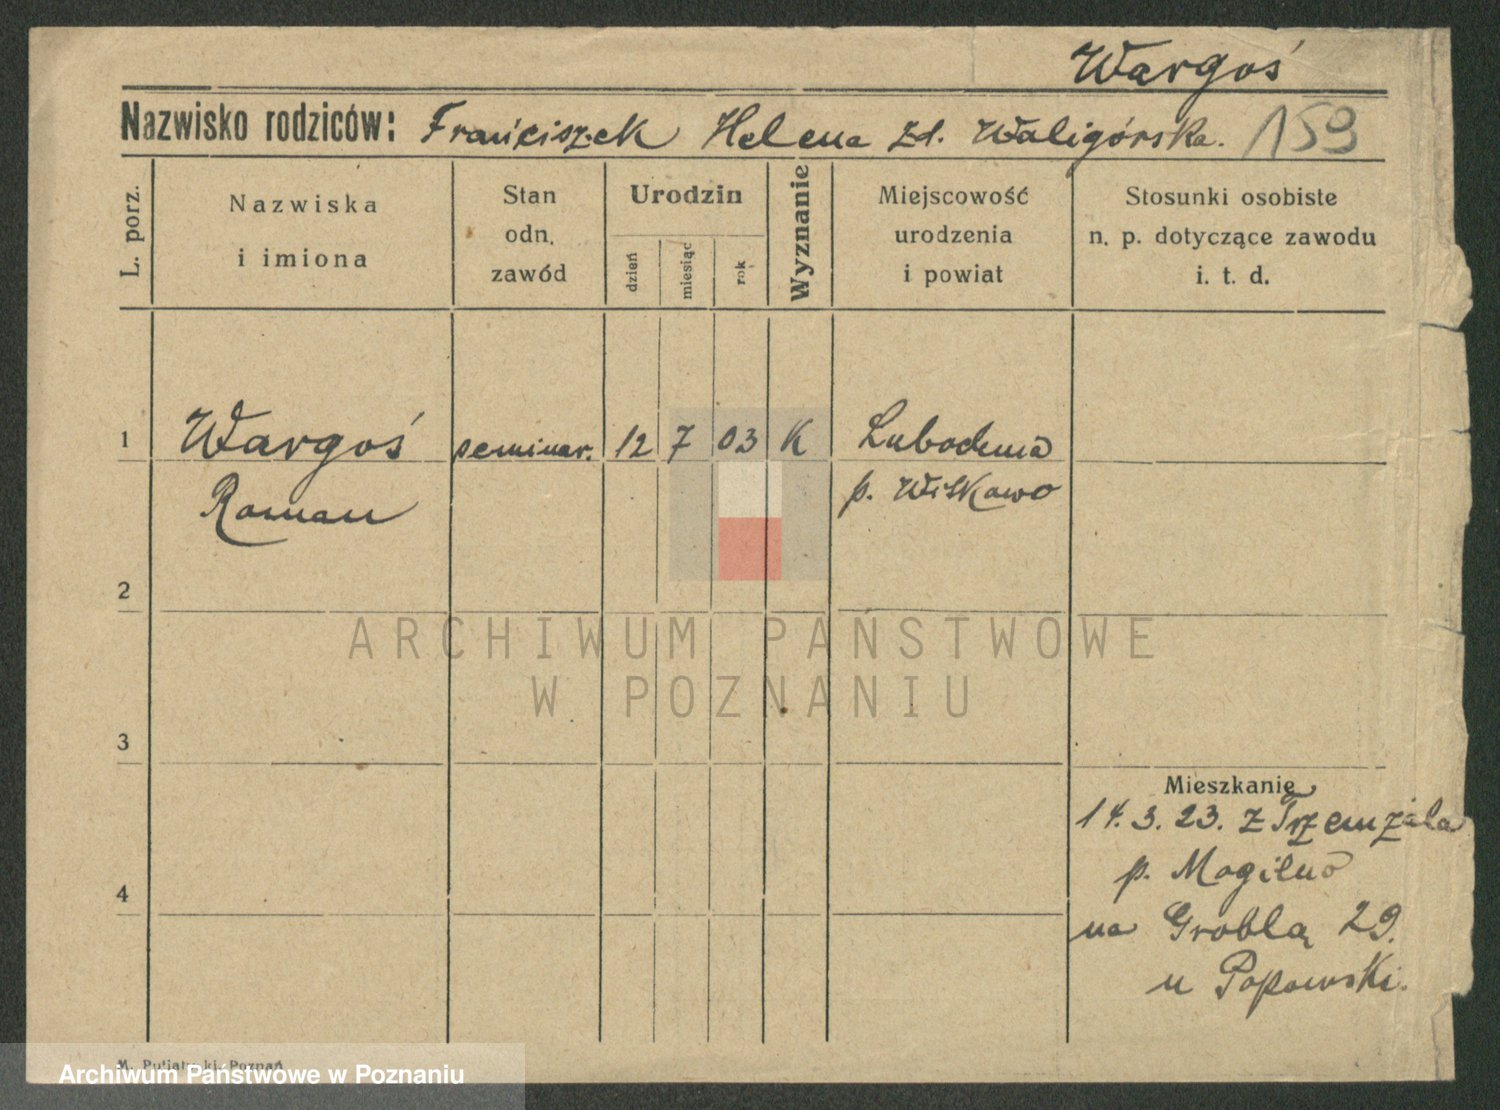 Wargoś
Nazwisko rodziców: Franciszek Helena zd. Waligórska. 159
L. porz.
Nazwiska
i imiona
Stan
odn.
zawód
Urodzin
dzień
miesiąc
rok
Wyznanie
Miejscowość
urodzenia
i powiat
Stosunki osobiste
n. p. dotyczące zawodu
i. t. d.
1 Wargoś seminar. 12 7 03 K
Roman p. Witkowo
2
ARCHIWUM PAŃSTWOWE
W POZNANIU
3
Mieszkanie
14. 3. 23. z Trzemżala
p. Mogilno
4
na Groblą 29.
u Popowski.
M. Putiatycki, Poznań
Archiwum Państwowe w Poznaniu